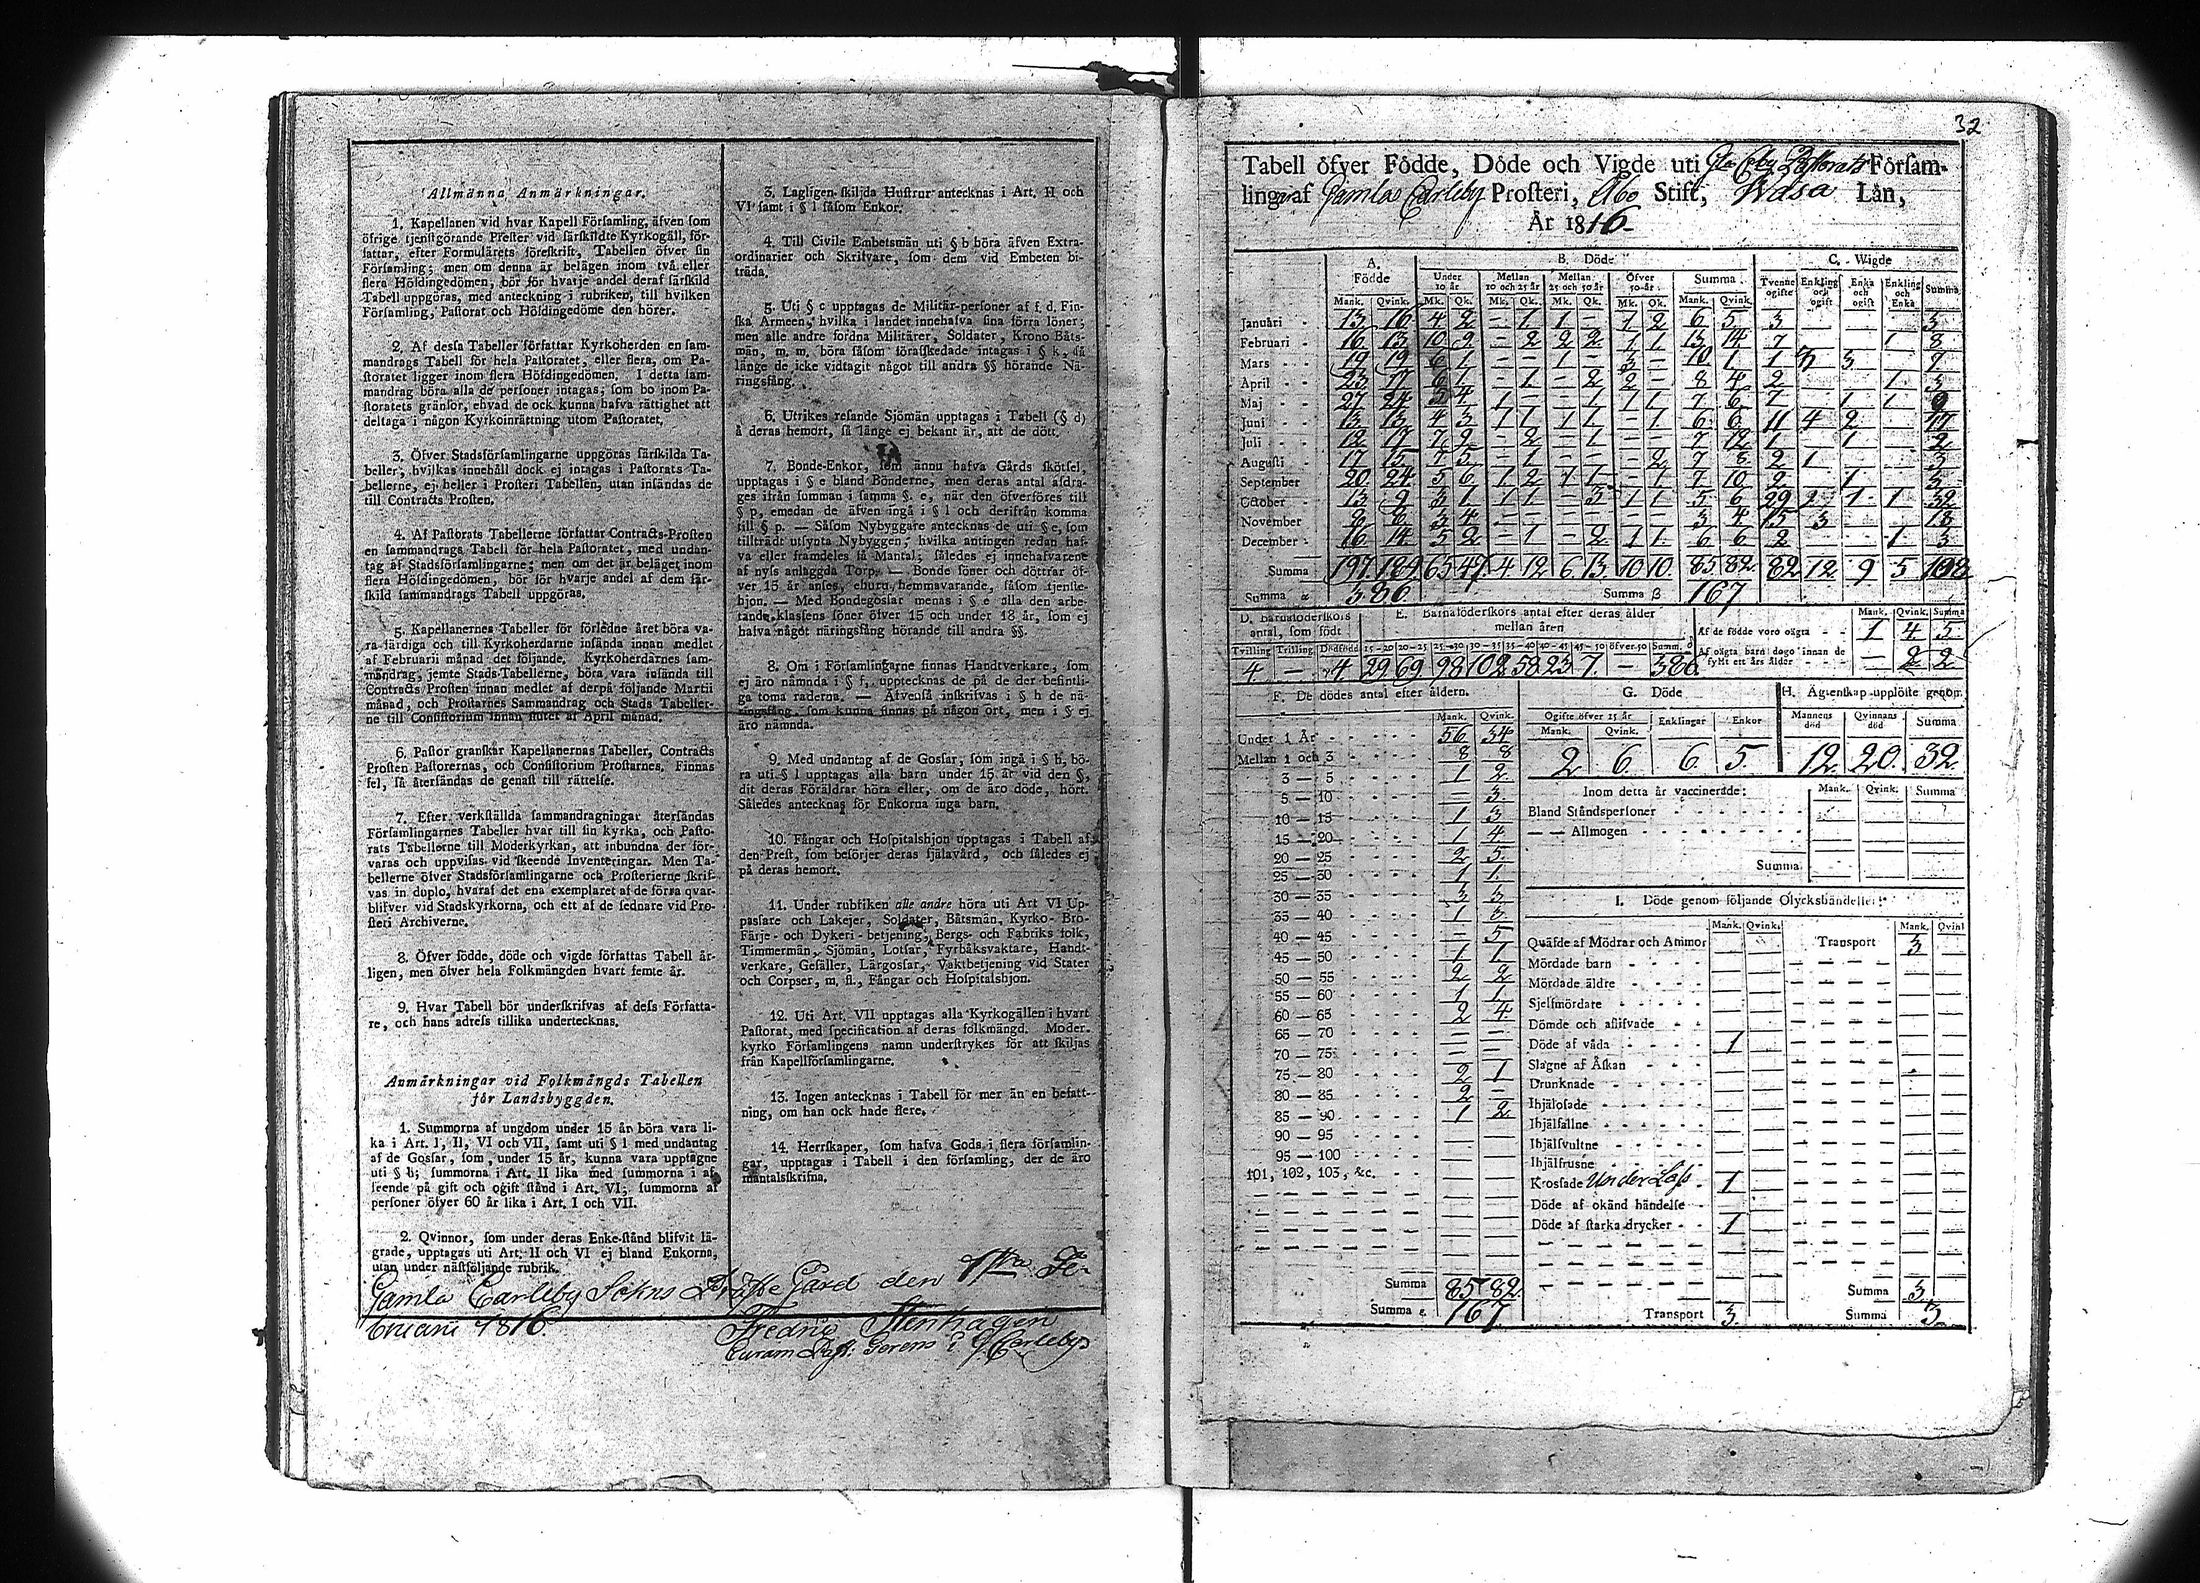 Allmänna Anmärkningar.
1. Kapellanen vid hvar Kapell Församling, äfven som
öfrige tjenstgörande Prester vid särskildte Kyrkogäll, för-
fattar, efter Formulärets föreskrift, Tabellen öfver sin
Församling; men om denna är belägen inom två eller
flera Höfdingedömen, bör för hvarje andel deraf särskild
Tabell uppgöras, med anteckning i rubriken, till hvilken
Församling, Pastorat och Höfdingedöme den hörer.
2. Af dessa Tabeller författar Kyrkoherden en sam-
mandrags Tabell för hela Pastoratet, eller flera, om Pa-
storatet ligger inom flera Höfdingedömen. I detta sam-
mandrag böra alla de personer intagas, som bo inom Pa-
storatets gränsor, ehvad de ock kunna hafva rättighet att
deltaga i någon Kyrkoinrättning utom Pastoratet.
3. Öfver Stadsförsamlingarne uppgöras särskilda Ta-
beller, hvilkas innehåll dock ej intagas i Pastorats Ta-
bellerne, ej heller i Prosteri Tabellen, utan insändas de
till Contracts Prosten.
4. Af Pastorats Tabellerne författar Contracts-Prosten
en sammandrags Tabell för hela Pastoratet, med undan-
tag af Stadsförsamlingarne; men om det är beläget inom
flera Höfdingedömen, bör för hvarje andel af dem sär-
skild sammandrags Tabell uppgöras.
5. Kapellanernes Tabeller för förledne året böra va-
ra färdiga och till Kyrkoherdarne insända innan medlet
af Februarii månad det följande. Kyrkoherdarnes sam-
mandrag, jemte Stads-Tabellerne, böra vara insända till
Contracts Prosten innan medlet af derpå följande Martii
månad, och Prostarnes Sammandrag och Stads Tabeller-
ne till Consistorium innan slutet af April månad.
6. Pastor granskar Kapellanernas Tabeller, Contracts
Prosten Pastorernas, och Consistorium Prostarnes. Finnas
fel, så återsändas de genast till rättelse.
7. Efter verkställda sammandragningar återsändas
Församlingarnes Tabeller hvar till sin kyrka, och Pasto-
rats Tabellerne till Moderkyrkan, att inbundna der för-
varas och uppvisas vid skeende Inventeringar. Men Ta-
bellerne öfver Stadsförsamlingarne och Prosterierne skrif-
vas in duplo, hvaraf det ena exemplaret af de förra qvar-
blifver vid Stadskyrkorna, och ett af de sednare vid Pro-
steri Archiverne.
8. Öfver födde, döde och vigde författas Tabell år-
ligen, men öfver hela Folkmängden hvart femte år.
9. Hvar Tabell bör underskrifvas af dess Författa-
re, och hans adress tillika undertecknas.
Anmärkningar vid Folkmängds Tabellen
för Landsbyggden.
1. Summorna af ungdom under 15 år böra vara li-
ka i Art. I, II, VI och VII, samt uti § l med undantag
af de Gossar, som under 15 år, kunna vara upptagne
uti § b; summorna i Art. II lika med summorna i af-
seende på gift och ogift stånd i Art. VI; summorna af
personer öfver 60 år lika i Art. I och VII.
2. Qvinnor, som under deras Enke-stånd blifvit lä-
grade, upptagas uti Art. II och VI ej bland Enkorna,
utan under nästföljande rubrik.
3. Lagligen skiljda Hustrur antecknas i Art. II och
VI samt i § l såsom Enkor.
4. Till Civile Embetsmän uti § b böra äfven Extra-
ordinarier och Skrifvare, som dem vid Embeten bi-
träda.
5. Uti § c upptagas de Militär-personer af f. d. Fin-
ska Armeen, hvilka i landet innehafva sina förra löner;
men alle andre fordna Militärer, Soldater, Krono Båts-
män, m. m. böra såsom förafskedade intagas i § k, så
länge de icke vidtagit något till andra §§ hörande Nä-
ringsfång.
6. Utrikes resande Sjömän upptagas i Tabell (§ d)
å deras hemort, så länge ej bekant är, att de dött.
7. Bonde-Enkor, som ännu hafva Gårds skötsel,
upptagas i § e bland Bönderne, men deras antal afdra-
ges ifrån summan i samma §. e, när den öfverföres till
§ p, emedan de äfven ingå i § l och derifrån komma
till § p. — Såsom Nybyggare antecknas de uti § e, som
tillträdt utsynta Nybyggen, hvilka antingen redan haf-
va eller framdeles få Mantal; således ej innehafvarene
af nyss anlaggda Torp. — Bonde söner och döttrar öf-
ver 15 år anses, ehuru hemmavarande, såsom tjenste-
hjon. — Med Bondegossar menas i § e alla den arbe-
tande klassens söner öfver 15 och under 18 år, som ej
hafva något näringsfång hörande till andra §§.
8. Om i Församlingarne finnas Handtverkare, som
ej äro nämnda i § f, upptecknas de på de der befintli-
ga toma raderna. — Äfvenså inskrifvas i § h de nä-
ringsfång, som kunna finnas på någon ort, men i § ej
äro nämnda.
9. Med undantag af de Gossar, som ingå i § b, bö-
ra uti § l upptagas alla barn under 15 år vid den §,
dit deras Föräldrar höra eller, om de äro döde, hört.
Således antecknas för Enkorna inga barn.
10. Fångar och Hospitalshjon upptagas i Tabell af
den Prest, som besörjer deras själavård, och således ej
på deras hemort.
11. Under rubriken alle andre höra uti Art VI Up-
passare och Lakejer, Soldater, Båtsmän, Kyrko- Bro-
Färje- och Dykeri-betjening, Bergs- och Fabriks folk,
Timmermän, Sjömän, Lotsar, Fyrbåksvaktare, Handt-
verkare, Gesäller, Lärgossar, Vaktbetjening vid Stater
och Corpser, m. fl., Fångar och Hospitalshjon.
12. Uti Art. VII upptagas alla Kyrkogällen i hvart
Pastorat, med specification af deras folkmängd. Moder-
kyrko Församlingens namn understrykes för att skiljas
från Kapellförsamlingarne.
13. Ingen antecknas i Tabell för mer än en befatt-
ning, om han ock hade flere.
14. Herrskaper, som hafva Gods i flera församlin-
gar, upptagas i Tabell i den församling, der de äro
mantalsskrifna.
Gamla Carleby Sokns Präste Gård den 1sta Fe-
bruarii 1816
Fredric Stenhagen
Curam Past: Gerens i G Carleby
32
Tabell öfver Födde, Döde och Vigde uti Gla Cby Pastorats Försam-
lingar af Gamla Carleby Prosteri, Åbo Stift, Wasa Län,
År 1816
A. Födde B. Döde C. Wigde
Under 10 år Mellan 10 och 25 år Mellan 25 och 50 år Öfver 50 år Summa Tvenne ogifte Enkling och ogift Enka och ogift Enkling och Enka Summa
Mank. Qvink. Mk. Qk. Mk. Qk. Mk. Qk. Mk. Qk. Mank. Qvink.
Januari 13 16 4 2 — 1 1 — 1 2 6 5 3 — — — 3
Februari 16 13 10 9 — 2 2 2 1 1 13 14 7 — — 1 8
Mars 19 19 6 1 — — 1 — 3 — 10 1 1 3 3 — 7
April 23 17 6 1 — 1 — 2 2 — 8 4 2 — — 1 3
Maj 27 24 5 4 1 — — 1 1 1 7 6 7 — 1 1 9
Juni 13 13 4 3 1 1 1 1 — 1 6 6 11 4 2 — 17
Juli 12 17 7 9 — 2 — 1 — — 7 12 1 — 1 — 2
Augusti 17 15 7 5 — 1 — — — 2 7 8 2 1 — — 3
September 20 24 5 6 1 2 1 1 — 1 7 10 2 — 1 — 3
October 13 9 3 1 1 1 — 3 1 1 5 6 29 2 1 1 32
November 8 8 3 4 — — — — — — 3 4 15 3 — — 18
December 16 14 5 2 — 1 — 2 1 1 6 6 2 — — 1 3
Summa 197 189 65 47 4 12 6 13 10 10 85 82 82 12 9 5 108
Summa α 386 Summa β 167
D. Barnaföderskors antal, som födt
Tvilling Trilling Dödfödde
4 — 4
E. Barnaföderskors antal efter deras ålder mellan åren
15—20 20—25 25—30 30—35 35—40 40—45 45—50 öfver 50 Summ. δ
29 69 98 102 58 23 7 — 386
Mank. Qvink. Summa
Af de födde voro oägta 1 4 5
Af oägta barn dogo innan de fyllt ett års ålder — 2 2
F. De dödes antal efter åldern.
Mank. Qvink.
Under 1 År 56 34
Mellan 1 och 3 8 8
3 — 5 1 2
5 — 10 — 3
10 — 15 1 3
15 — 20 1 4
20 — 25 2 5
25 — 30 1 1
30 — 35 3 3
35 — 40 1 3
40 — 45 — 5
45 — 50 1 1
50 — 55 2 2
55 — 60 1 1
60 — 65 2 4
65 — 70 — —
70 — 75 — —
75 — 80 2 1
80 — 85 2 —
85 — 90 1 2
90 — 95 — —
95 — 100 — —
101, 102, 103, &c. — —
Summa 85 82
Summa ε 167
G. Döde
Ogifte öfver 15 år Enklingar Enkor
Mank. Qvink.
2 6 6 5
H. Ägtenskap upplöste genom
Mannens död Qvinnans död Summa
12 20 32
Inom detta år vaccinerade: Mank. Qvink. Summa
Bland Ståndspersoner
— — Allmogen
Summa
I. Döde genom följande Olyckshändelser
Mank. Qvink. Mank. Qvink
Quäfde af Mödrar och Ammor — — Transport 3
Mördade barn
Mördade äldre
Sjelfmördare
Dömde och aflifvade
Döde af våda 1
Slagne af Åskan
Drunknade
Ihjälosade
Ihjälfallne
Ihjälsvultne
Ihjälfrusne
Krossade Under Lass 1
Döde af okänd händelse
Döde af starka drycker 1
Summa 3
Transport 3 Summa 3